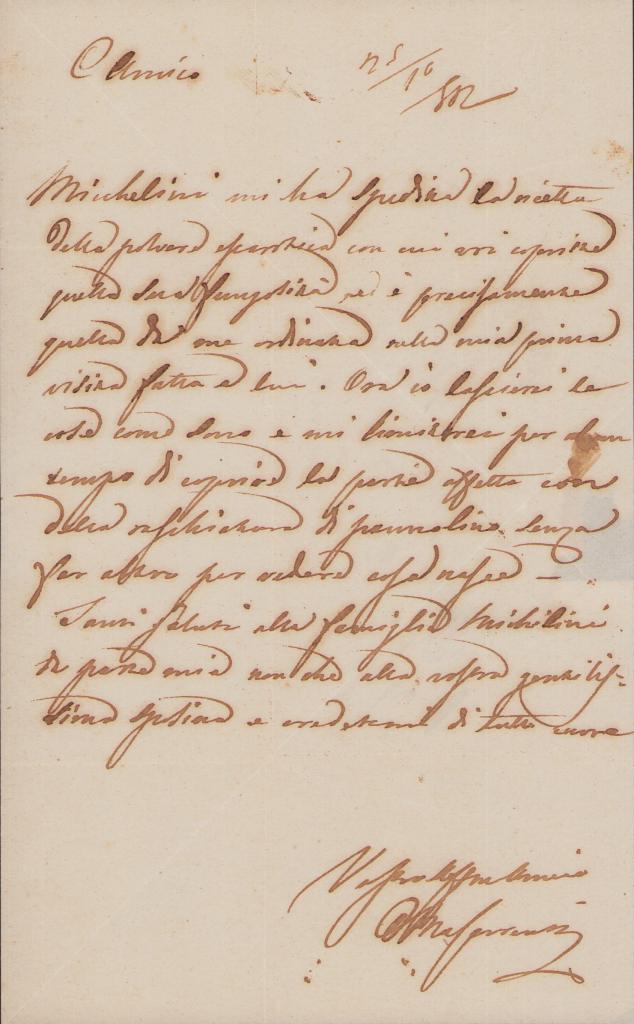 C Amico
Michelini mi ha spedita la ricetta
della polvere escarotica con cui voi copriste
quella sua fungosità, ed è precisamente
quella da me ordinata nella mia prima
visita fatta a lui. Ora io lascierei le
cose come sono e mi limiterei per alcun
tempo di coprire la parte affetta con
della raschiatura di pannolino senza
far altro per vedere cosa nasce —
Tanti saluti alla famiglia Michelini
da parte mia non che alla vostra gentilis-
sima sposina e credetemi di tutto cuore
Vostro Affmo Amico